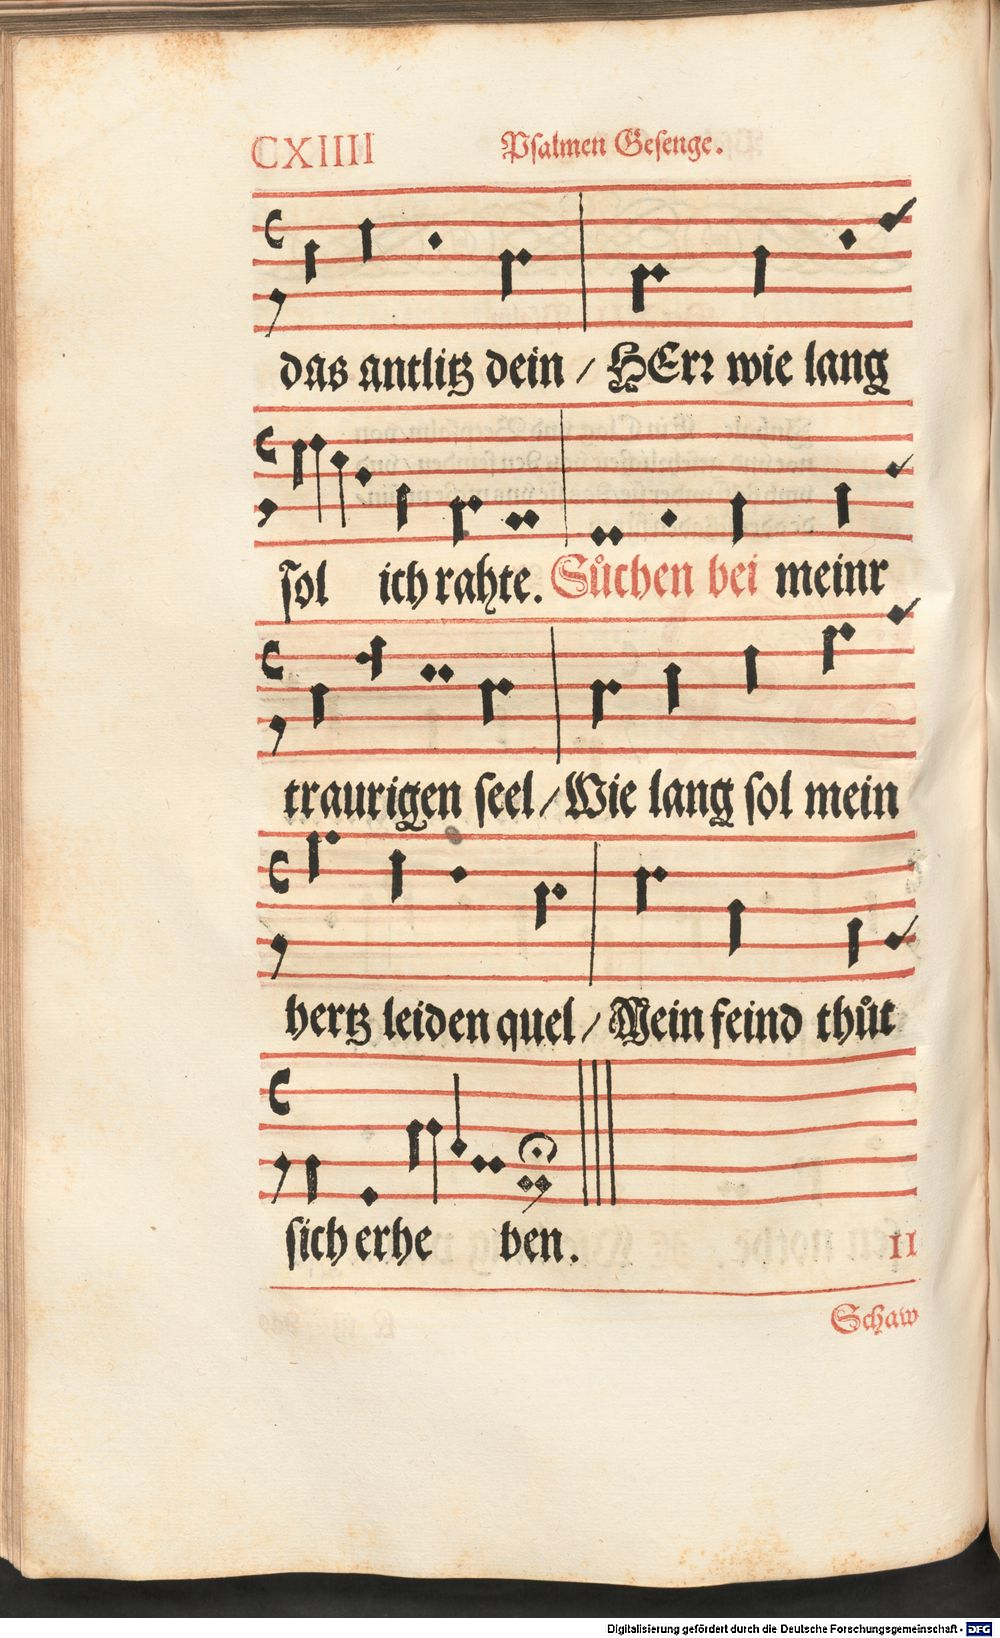 CXIIII Psalmen Gesenge.
das antlitz dein / HErr wie lang
sol ich rahte. Sůchen bei meinr
traurigen seel / Wie lang sol mein
hertz leiden quel / Mein feind thůt
sich erhe ben.
II
Schaw
Digitalisierung gefördert durch die Deutsche Forschungsgemeinschaft - DFG